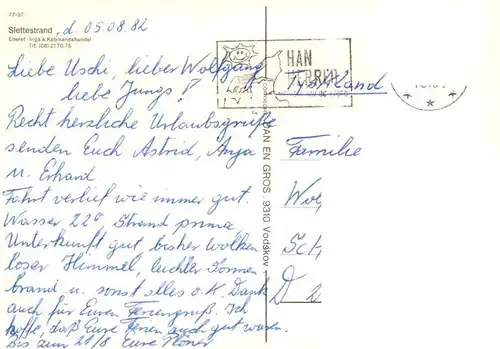 77-37
Slettestrand, d. 05.08.82
Eneret: Inga's Købmandshandel
Tlf. (08) 21 70 75
Liebe Uschi, lieber Wolfgang
liebe Jungs!
Recht herzliche Urlaubsgrüße
senden Euch Astrid, Anja
u. Erhard
Fahrt verlief wie immer gut.
Wasser 22° Strand prima
Unterkunft gut, bisher wolken
loser Himmel, leichter Sonnen
brand u. sonst alles o.K. Dank
auch für Euren Feriengruß. Ich
hoffe, daß Eure Ferien auch gut waren.
Bis zum 21/8 Eure
HAN
HERRED
DAN EN GROS · 9310 Vodskov
Familie
Wol
Sch
D 2